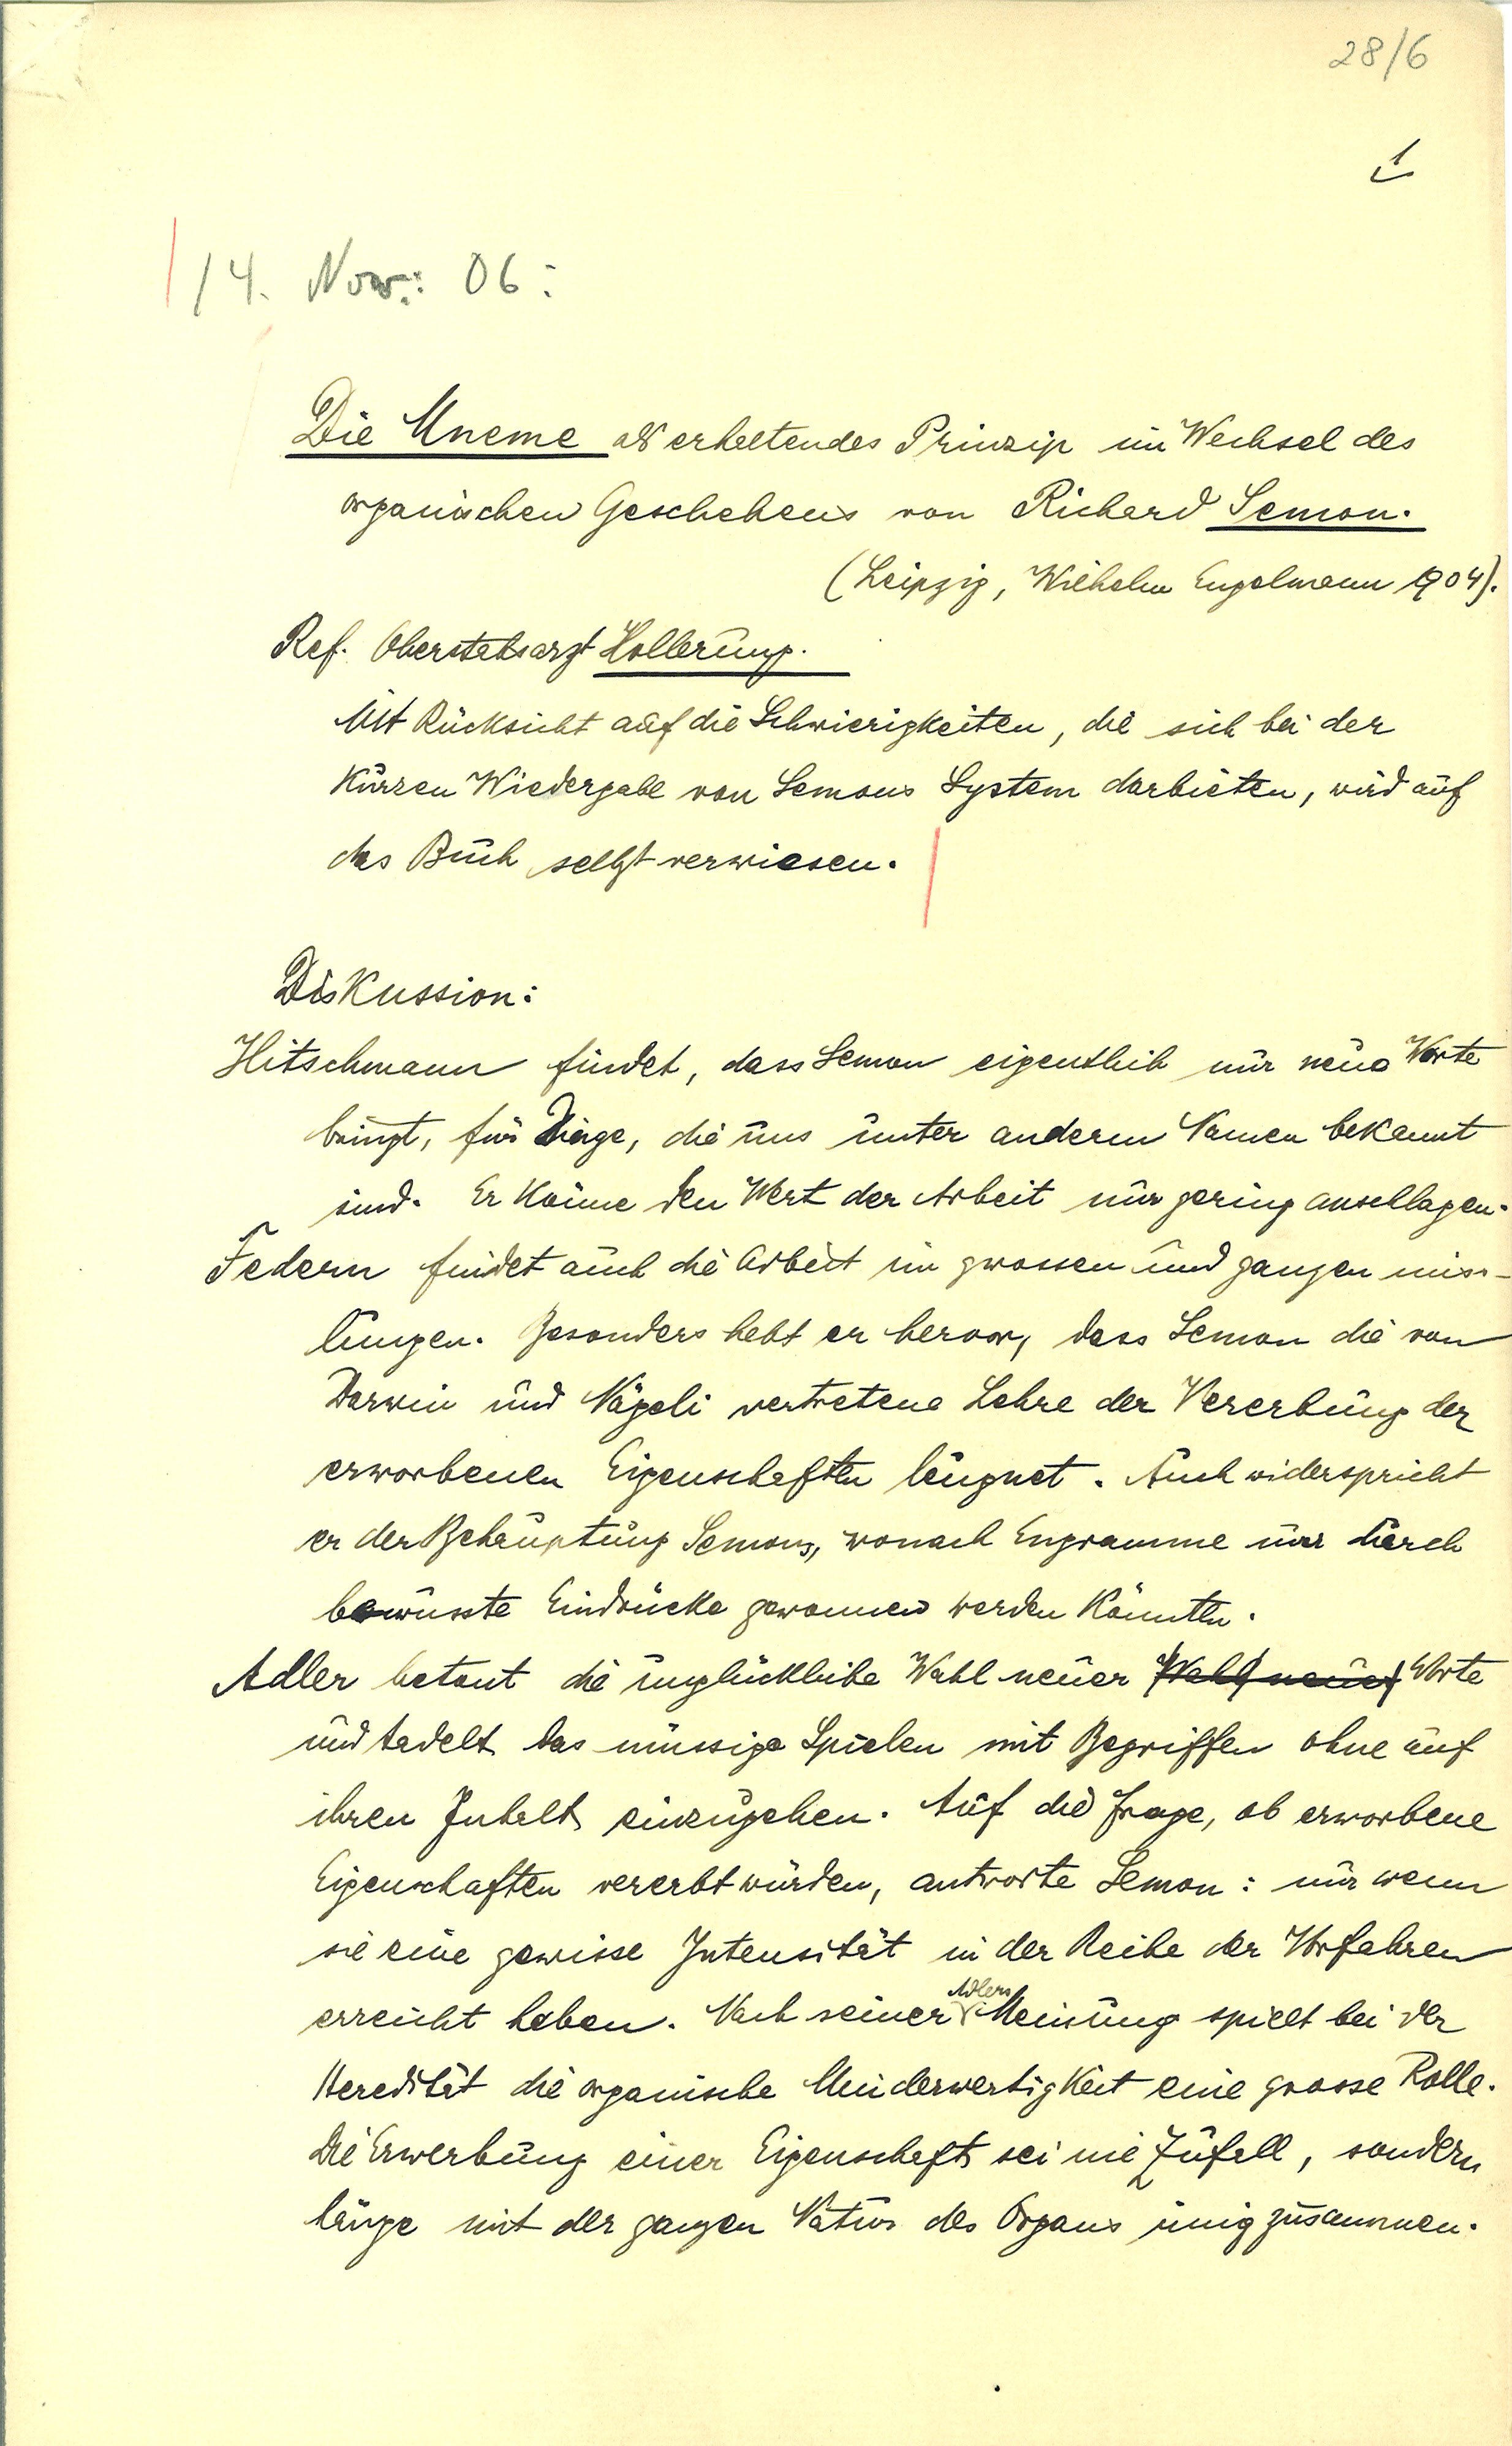 28/6
1
14. Nov.: 06:
Die Mneme als erhaltendes Prinzip im Wechsel des
organischen Geschehens von Richard Semon.
(Leipzig, Wilhelm Engelmann 1904).
Ref. Oberstabsarzt Hollerung.
Mit Rücksicht auf die Schwierigkeiten, die sich bei der
kurzen Wiedergabe von Semons System darbieten, wird auf
das Buch selbst verwiesen.
Diskussion:
Hitschmann findet, dass Semon eigentlich nur neue Worte
bringt, für Dinge, die uns unter anderem Namen bekannt
sind. Er könne den Wert der Arbeit nur gering anschlagen.
Federn findet auch die Arbeit im grossen und ganzen miss-
lungen. Besonders hebt er hervor, dass Semon die von
Darwin und Nägeli vertretene Lehre der Vererbung der
erworbenen Eigenschaften leugnet. Auch widerspricht
er der Behauptung Semons, wonach Engramme nur durch
bewusste Eindrücke gewonnen werden könnten.
Adler betont die unglückliche Wahl neuer Wahl neuer Worte
und tadelt das müssige Spielen mit Begriffen ohne auf
ihren Inhalt einzugehen. Auf die Frage, ob erworbene
Eigenschaften vererbt würden, antworte Semon: nur wenn
sie eine gewisse Intensität in der Reihe der Vorfahren
erreicht haben. Nach seiner Adlers Meinung spielt bei der
Heredität die organische Minderwertigkeit eine grosse Rolle.
Die Erwerbung einer Eigenschaft sei nie Zufall, sondern
hänge mit der ganzen Natur des Organs innig zusammen.